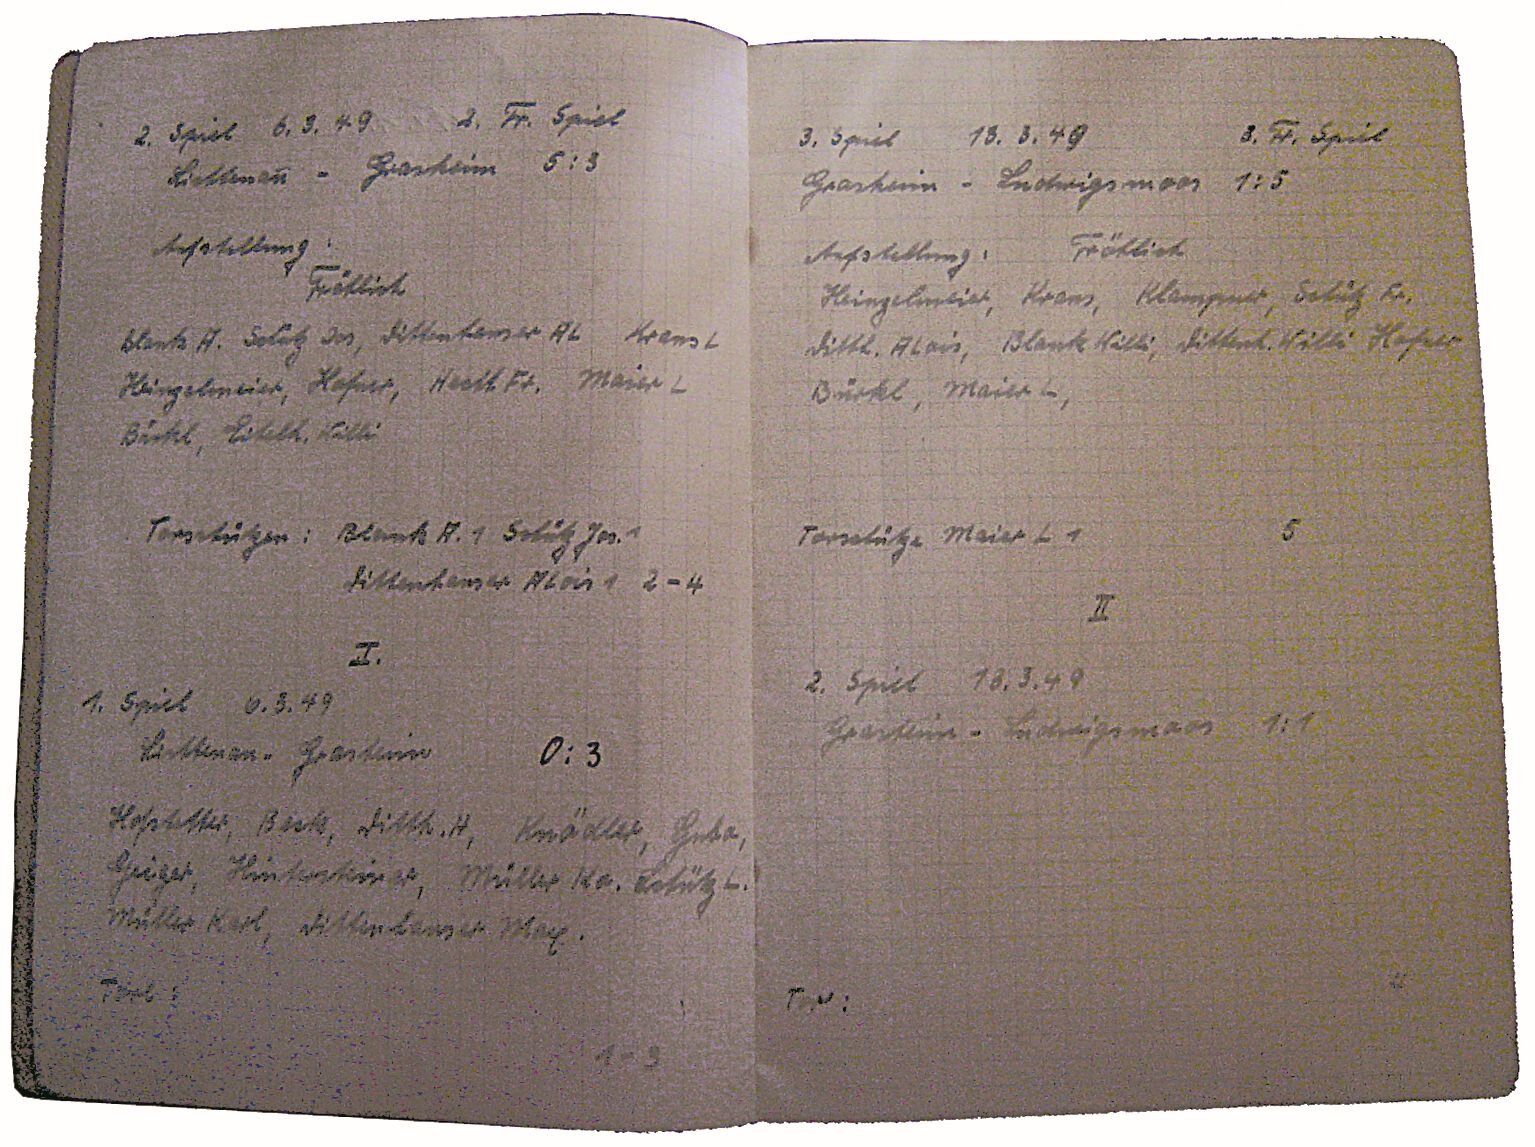 2. Spiel 6.3.49 2. Fr. Spiel
Lichtenau - Grasheim 5:3
Aufstellung:
Fröhlich
Blank A. Schütz Jos, Dittenhauser AL Kraus L
Heinzelmeier, Hafner, Fr. Maier L
Bürkl, Willi
Torschützen: Blank A. 1 Schütz Jos. 1
Dittenhauser Alois 1 2-4
I.
1. Spiel 6.3.49
Lichtenau - Grasheim 0:3
Hofstetter, Beck, Ditth. A, Knödler, Guba,
Geiger, Hintersteiner, Müller Ka. Schütz L.
Müller Karl, Dittenhauser Max.
1-3
3. Spiel 13.3.49 3. Fr. Spiel
Grasheim - Ludwigsmoos 1:5
Aufstellung: Fröhlich
Heinzelmeier, Kraus, Klampner, Schütz Fr.
Ditth. Alois, Blank Willi, Dittenh. Willi Hafner
Bürkl, Maier L,
Torschütze Maier L 1 5
II
2. Spiel 13.3.49
Grasheim - Ludwigsmoos 1:1
Tor: